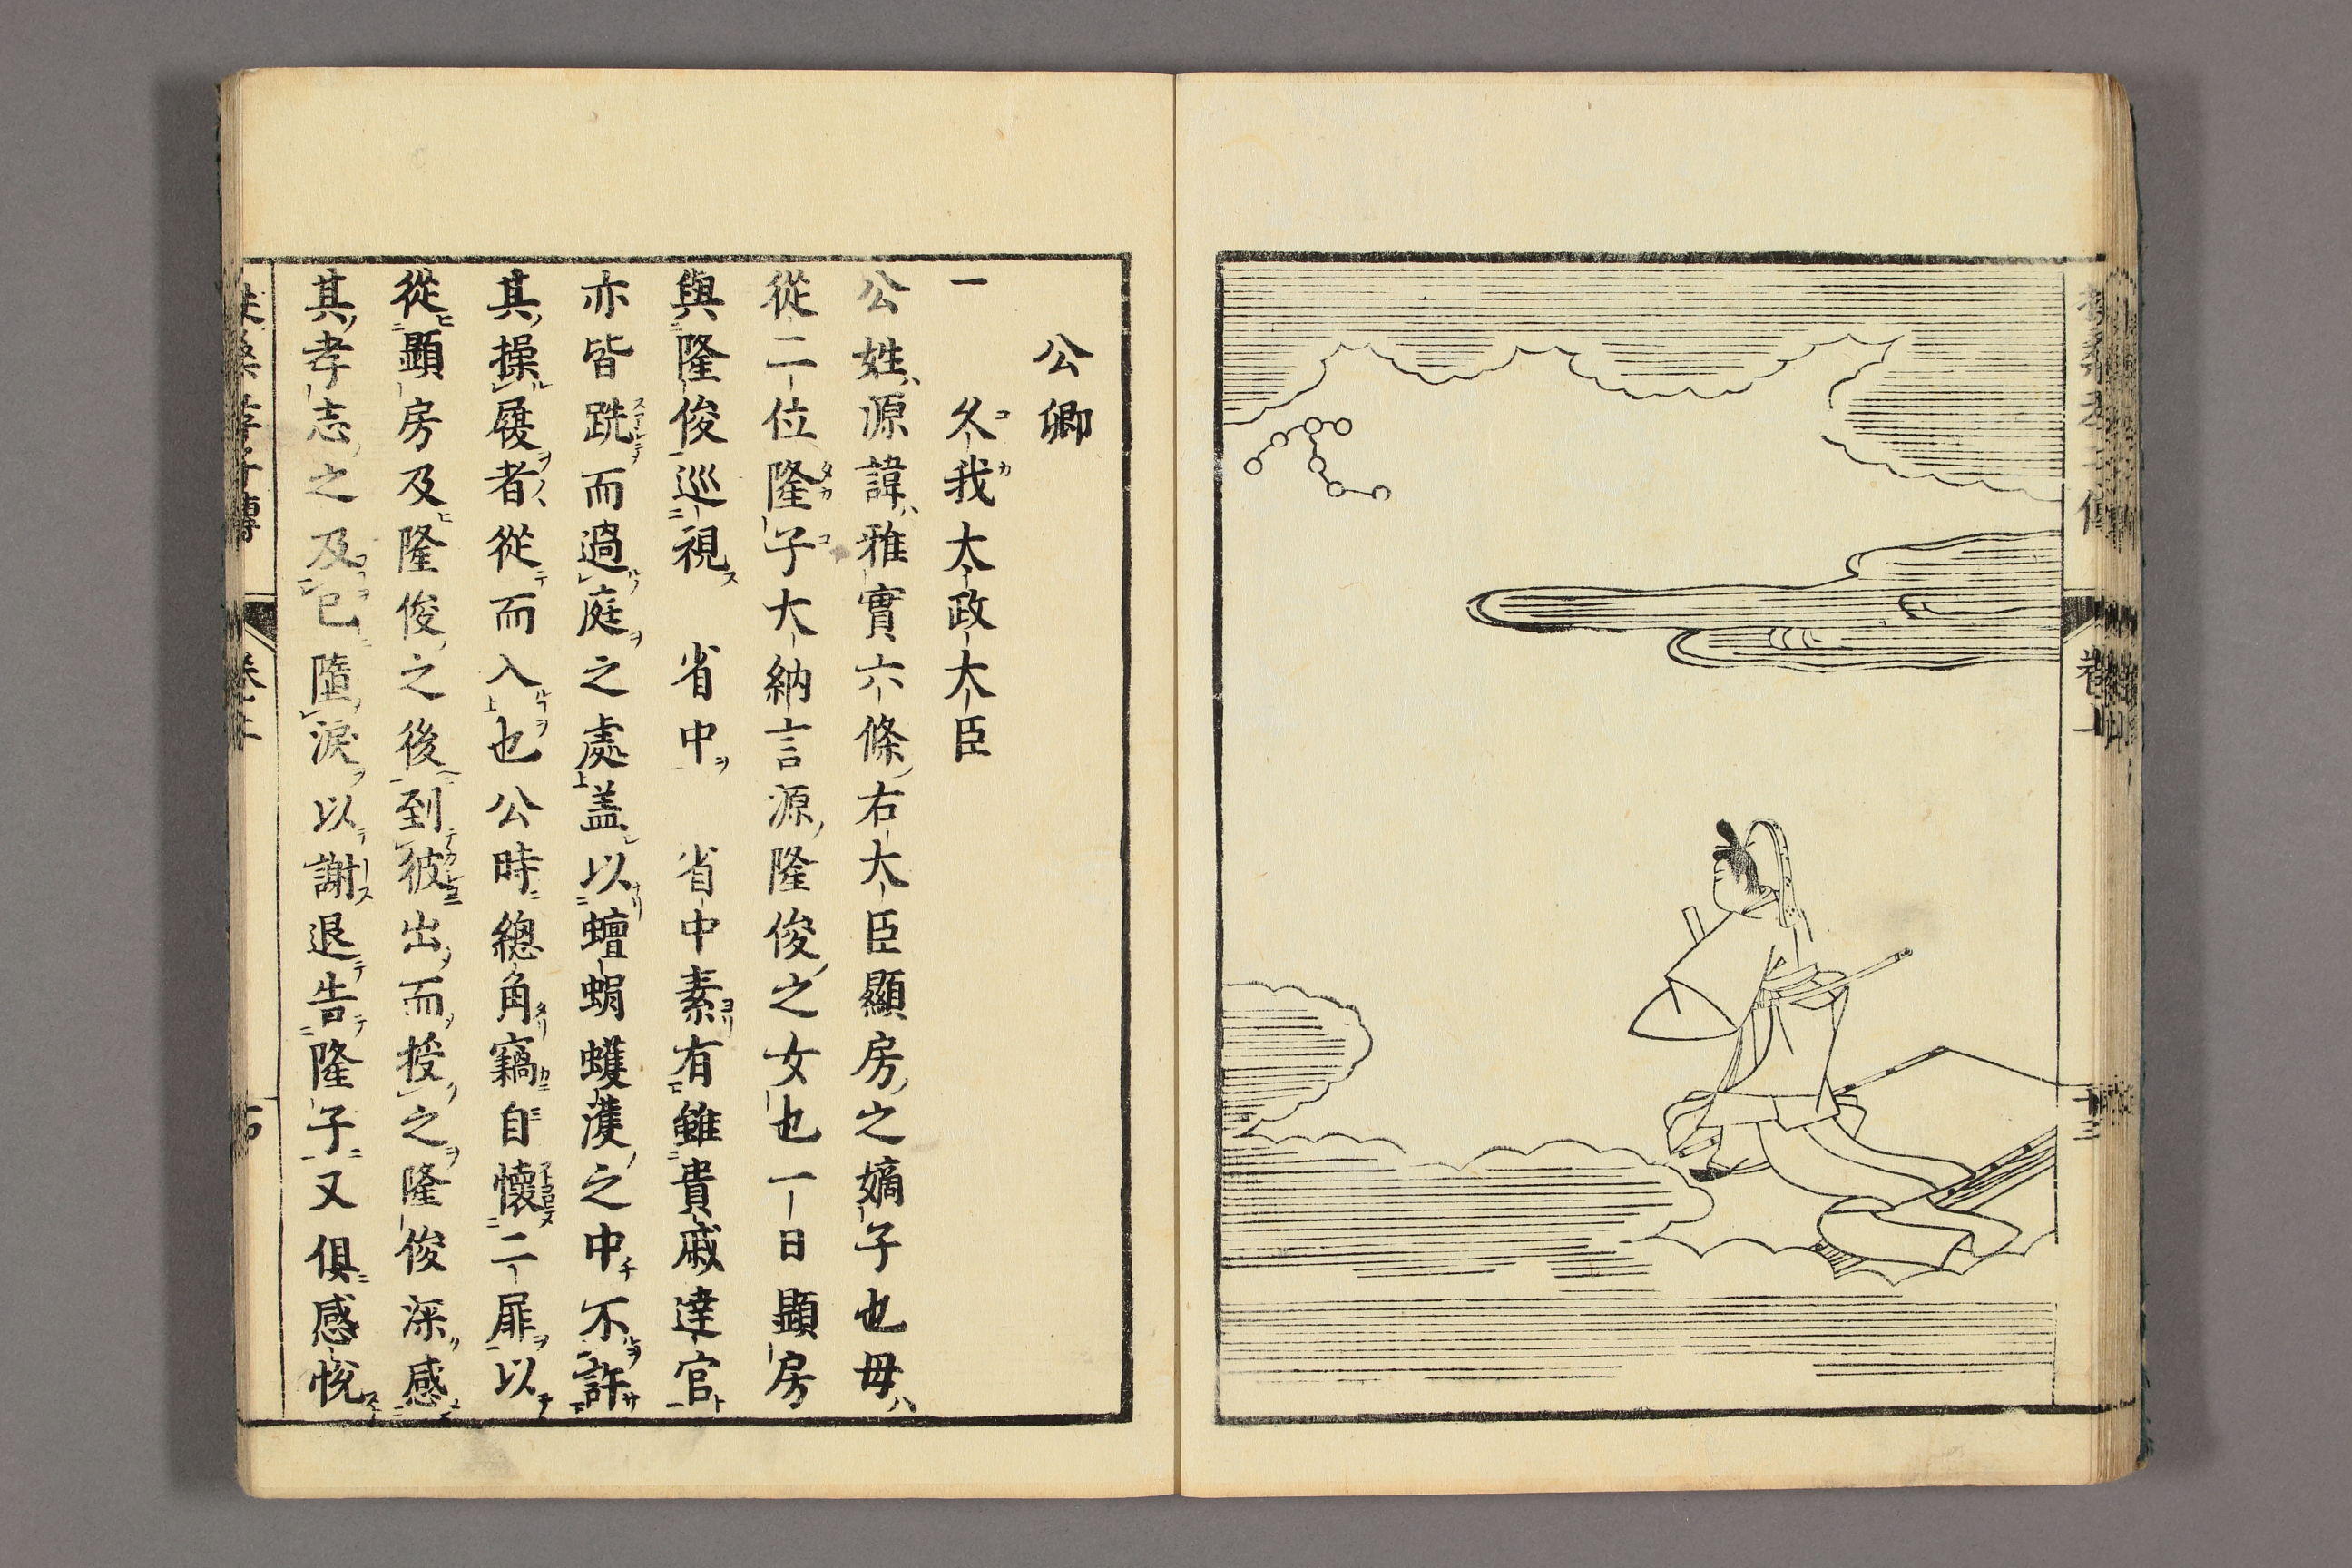 公卿
一 久我太政大臣
公姓源諱雅實六條右大臣顯房之嫡子也母
從二位隆子大納言源隆俊之女也一日顯房
與隆俊巡視 省中 省中素有雖貴戚達官
亦皆跣而過庭之處盖以蟺蜎蠖濩之中不許
其操履者從而入也公時總角竊自懷二扉以
從顯房及隆俊之後到彼出而授之隆俊深感
其孝志之及已墮淚以謝退告隆子又俱感悅